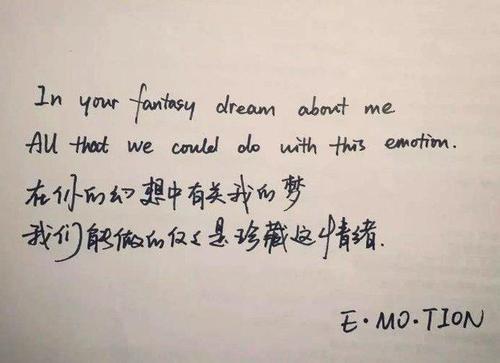 In your fantasy dream about me
All that we could do with this emotion.
在你的幻想中有关我的梦
我们能做的仅仅是珍藏这情绪.
E·MO·TION